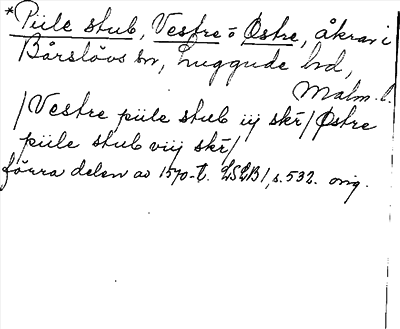 *Piile stub, Vestre o Østre, åkrar i
Bårslövs sn, Luggude hd,
Malm. l.
/Vestre piile stub iij skr̄/ Østre
piile stub viij skr̄/
förra delen av 1570-t. LSLB1, s. 532. orig.